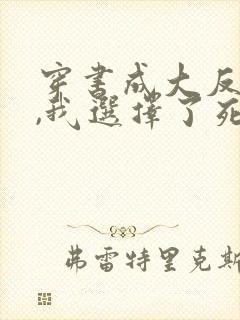 穿書成大反
,我選擇了死
弗雷特里克斯